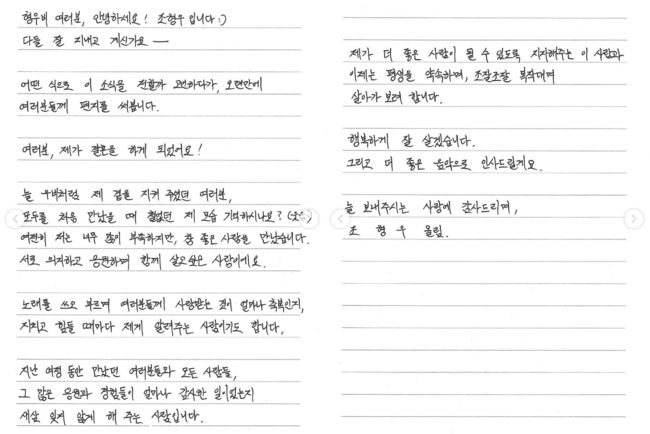 형우비 여러분, 안녕하세요! 조형우 입니다 :)
다들 잘 지내고 계신가요 —
어떤 식으로 이 소식을 전할까 고민하다가, 오랜만에
여러분들께 편지를 써봅니다.
여러분, 제가 결혼을 하게 되었어요!
늘 우비처럼 제 곁을 지켜 주었던 여러분,
모두를 처음 만났을 때 철없던 제 모습 기억하시나요?
여전히 저는 너무 많이 부족하지만, 참 좋은 사람을 만났습니다.
서로 의지하고 응원하며 함께 살고싶은 사람이에요.
노래를 쓰고 부르며 여러분들께 사랑받는 것이 얼마나 축복인지,
지치고 힘들 때마다 제게 알려주는 사람이기도 합니다.
지난 여정 동안 만났던 여러분들과 모든 사람들,
그 많은 응원과 경험들이 얼마나 감사한 일이었는지
새삼 잊지 않게 해 주는 사람입니다.
제가 더 좋은 사람이 될 수 있도록 지지해주는 이 사람과
이제는 평생을 약속하며, 조잘조잘 복작대며
살아가 보려 합니다.
행복하게 잘 살겠습니다.
그리고 더 좋은 음악으로 인사드릴게요.
늘 보내주시는 사랑에 감사드리며,
조 형 우 올림.